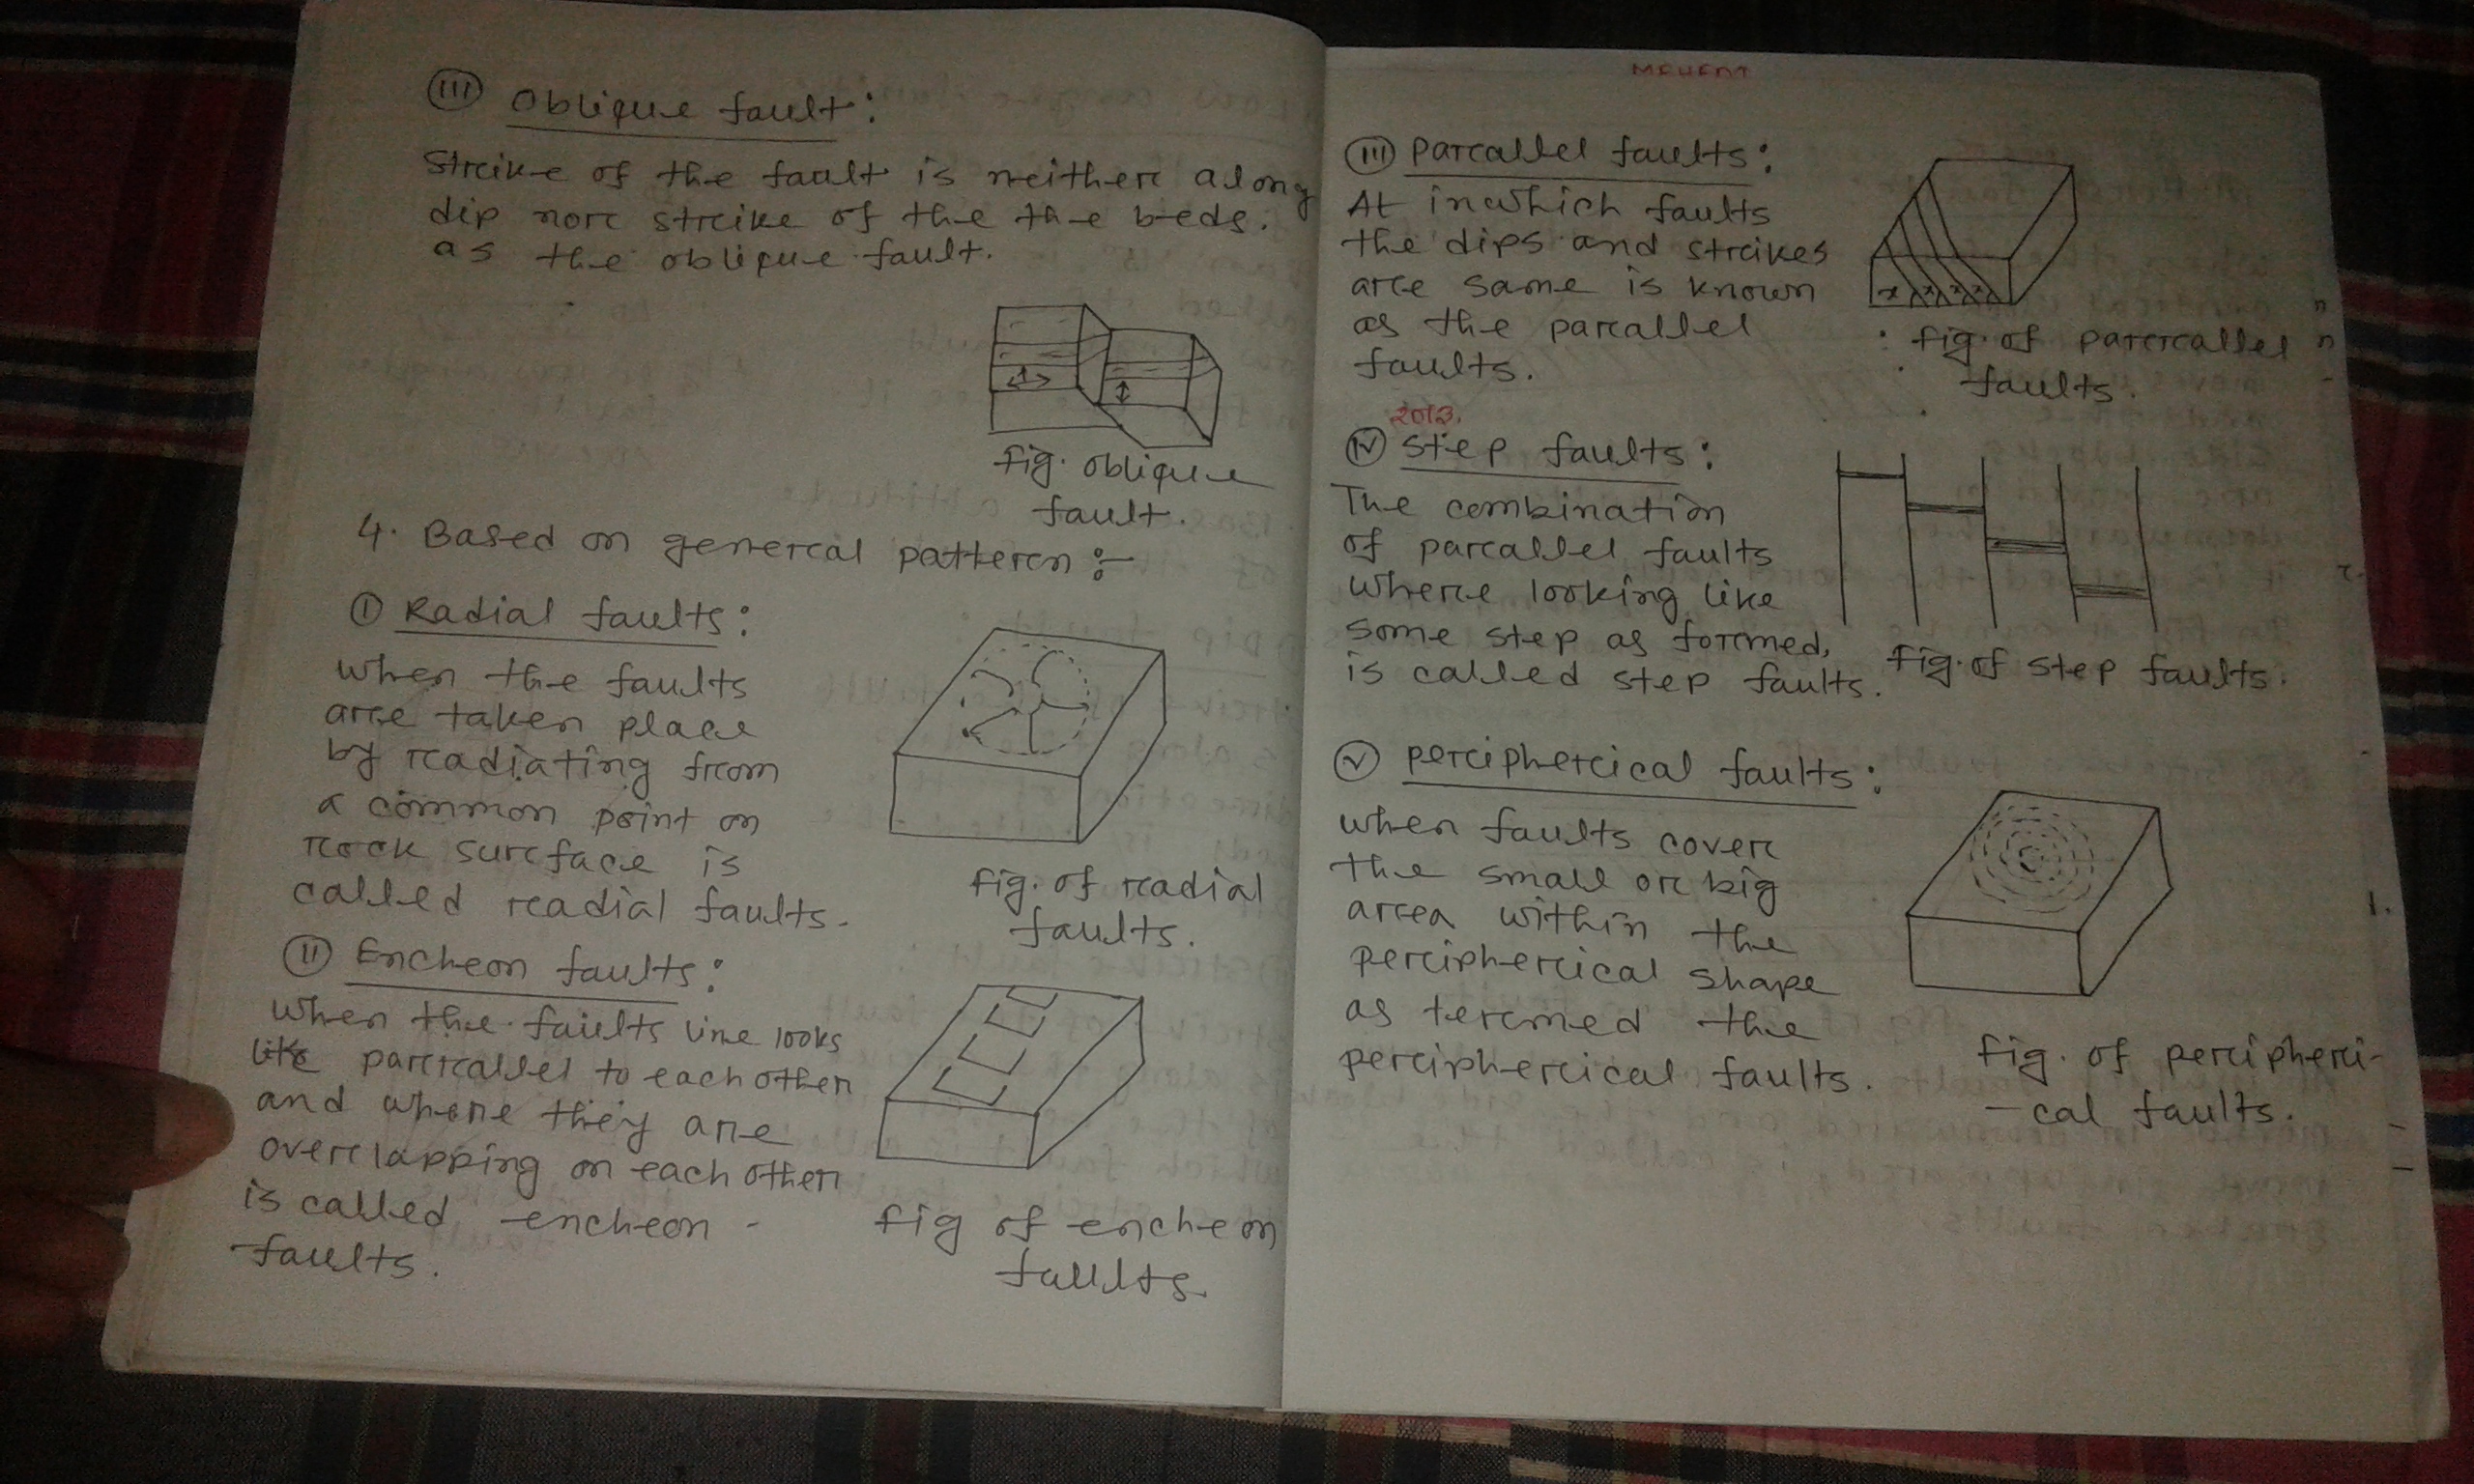 III Oblique fault:
Strcike of the fault is neitherc along
dip norc strcike of the the beds.
as the oblique fault.
fig. oblique
fault.
4. Based on genercal pattercn :-
I Radial faults:
when the faults
arce taken place
by rcadiating frcom
a common point on
rcock surcface is
called rcadial faults.
fig. of rcadial
faults.
II Encheon faults:
when the faults line looks
like parcrcallel to each otherc
and where they are
overclapping on each otherc
is called encheon -
faults.
fig of encheon
faults.
III Parcallel faults:
At inwhich faults
the dips and strcikes
arce same is known
as the parcallel
faults.
fig. of parcrcallel
faults.
2013.
IV Step faults:
The combination
of parcallel faults
wherce looking like
some step as forcmed,
is called step faults.
fig. of step faults.
V Perciphercical faults:
when faults coverc
the small orc big
arcea within the
perciphercical shape
as tercmed the
perciphercical faults.
fig. of percipherci-
-cal faults.